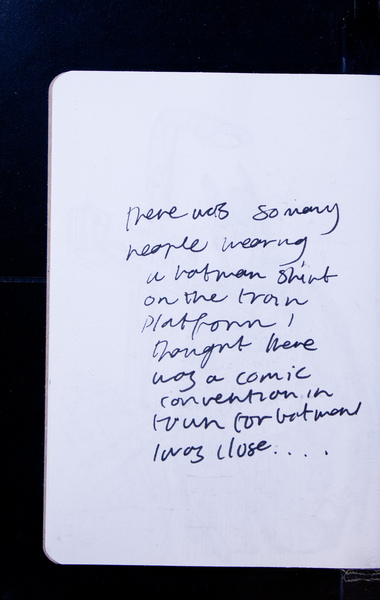 there was so many
people wearing
a batman shirt
on the train
platform I
thought there
was a comic
convention in
town for batman
I was close.....